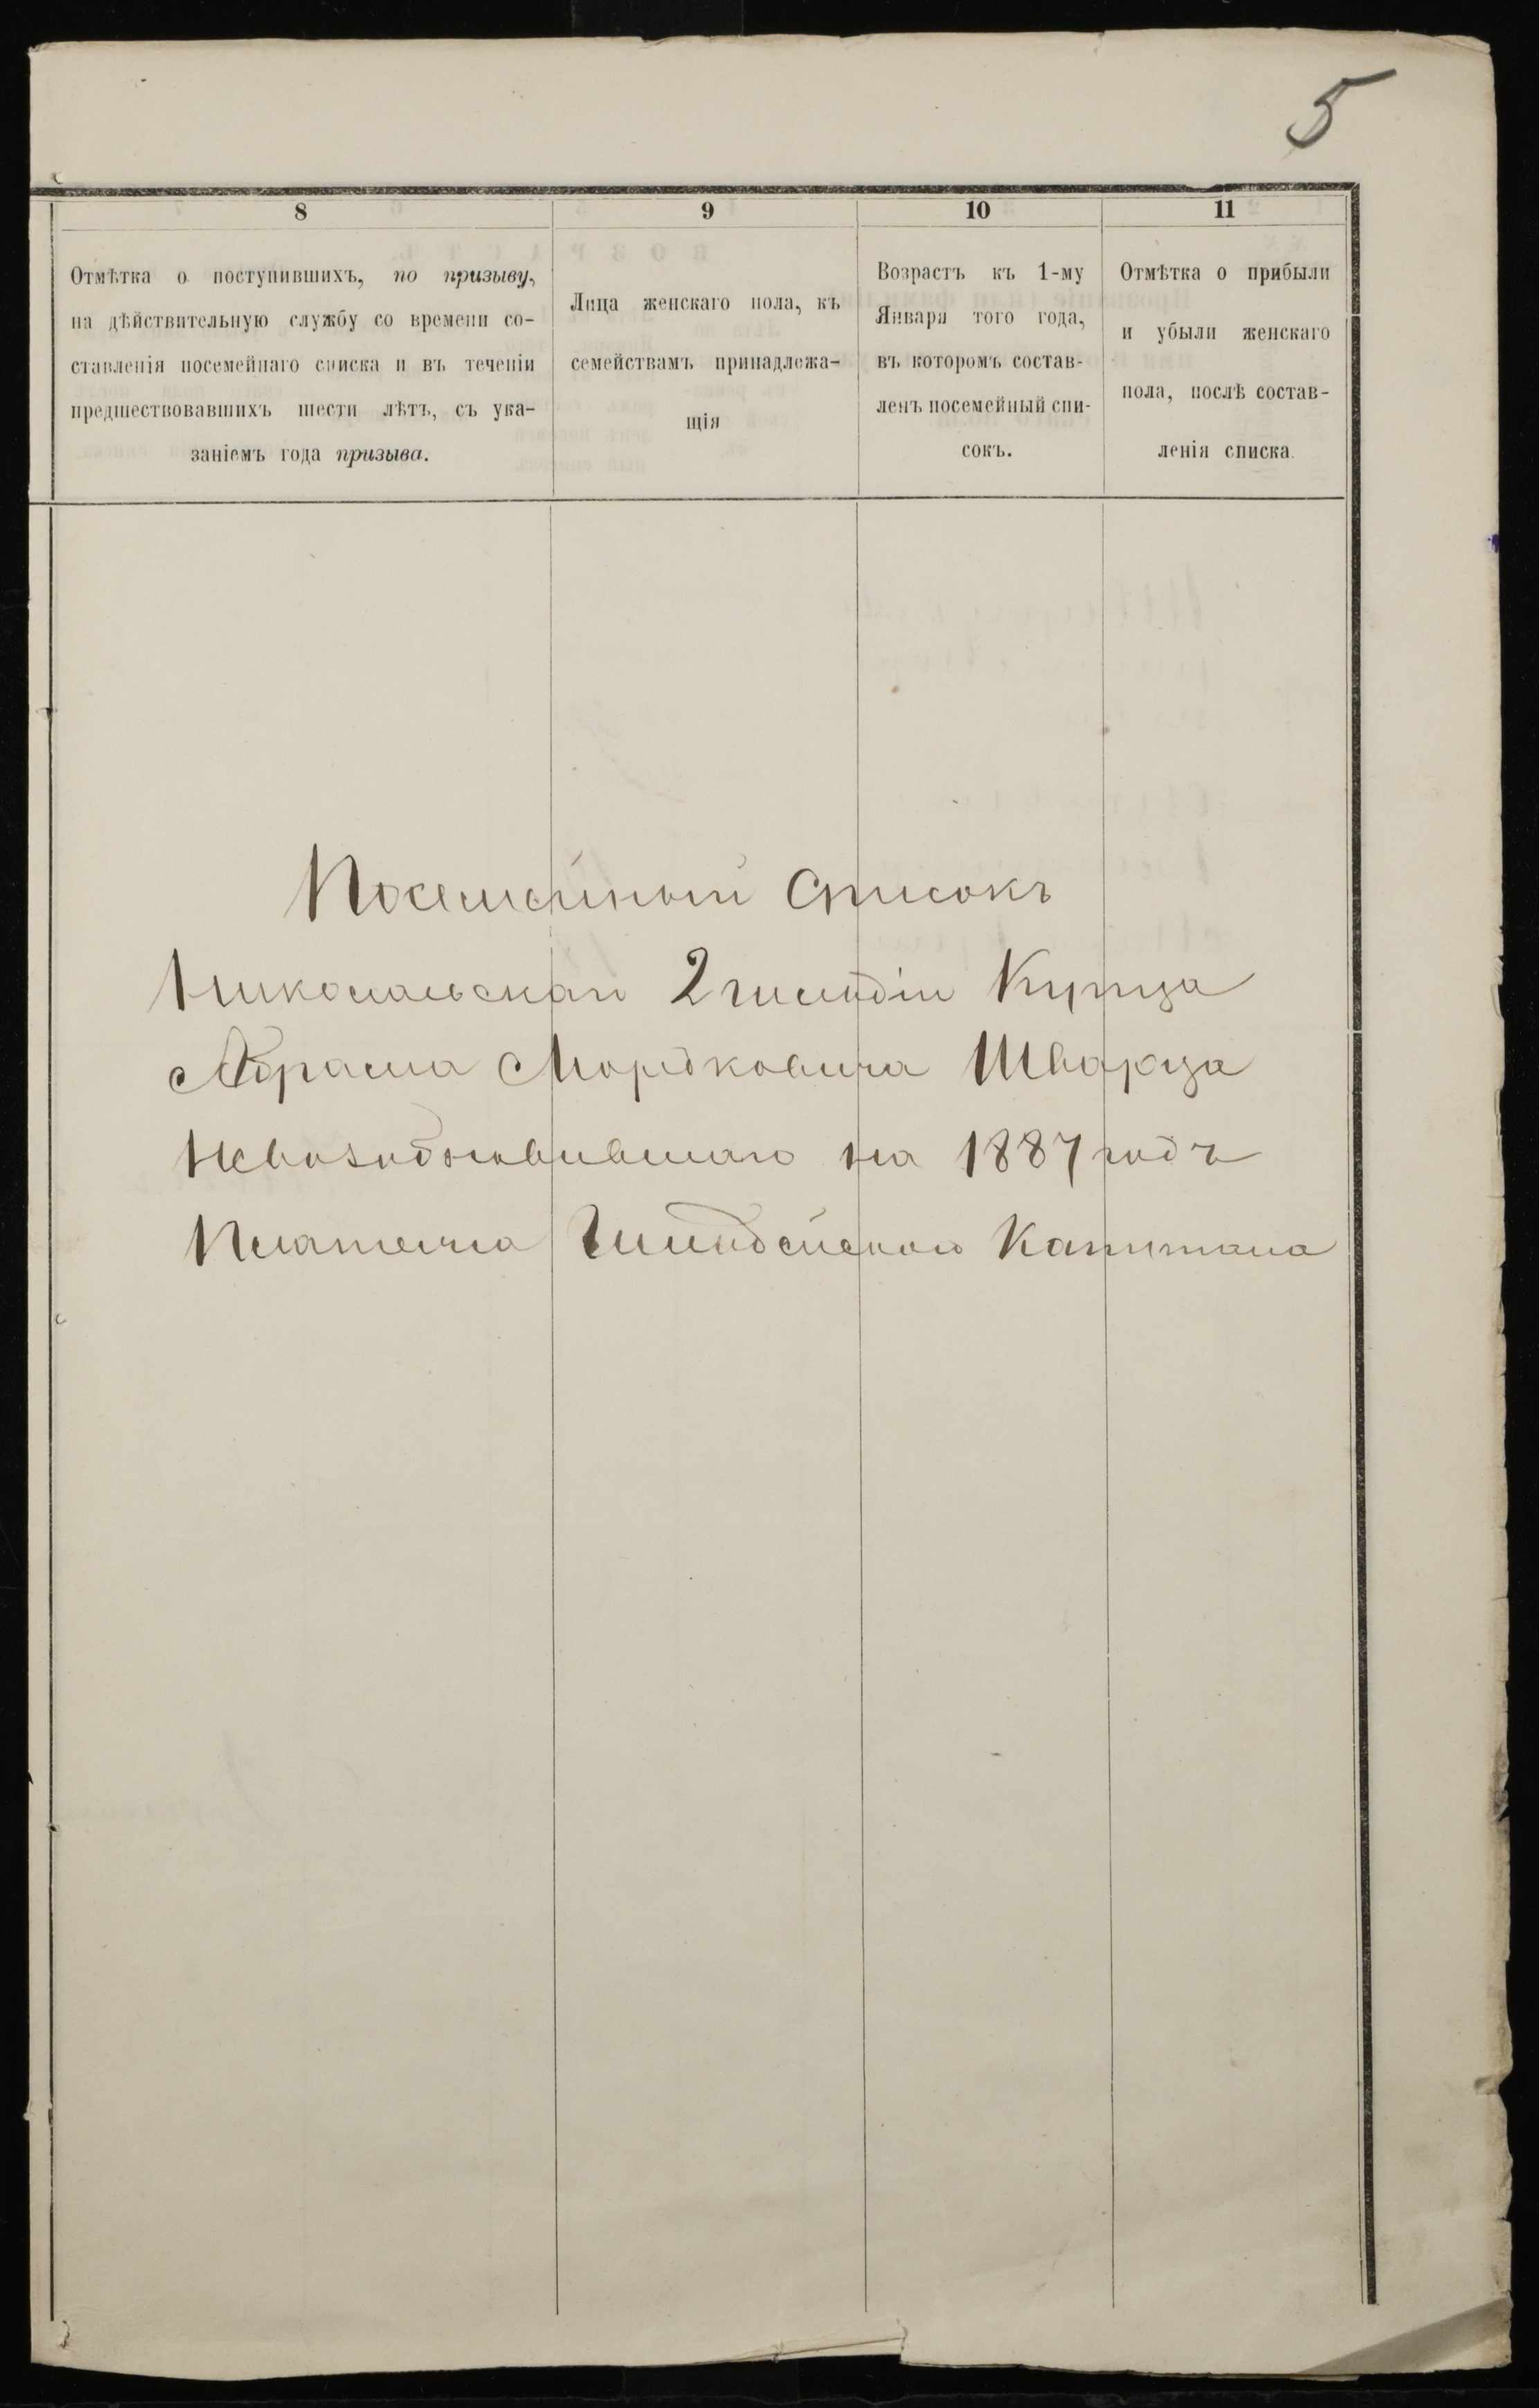 5
8
9
10
11
Отмѣтка о поступившихъ, по призыву,
на дѣйствительную службу со времени со-
ставленія посемейнаго списка и въ теченіи
предшествовавшихъ шести лѣтъ, съ ука-
заніемъ года призыва.
Лица женскаго пола, къ
семействамъ принадлежа-
щія
Возрастъ къ 1-му
Января того года,
въ которомъ состав-
ленъ посемейный спи-
сокъ.
Отмѣтка о прибыли
и убыли женскаго
пола, послѣ состав-
ленія списка.
Посемейный Списокъ
Николаевскаго 2 гильдіи Купца
Абрама Мордковича Шварца
Невозобновившаго на 1887 годъ
Платежа Гильдейского Капитала